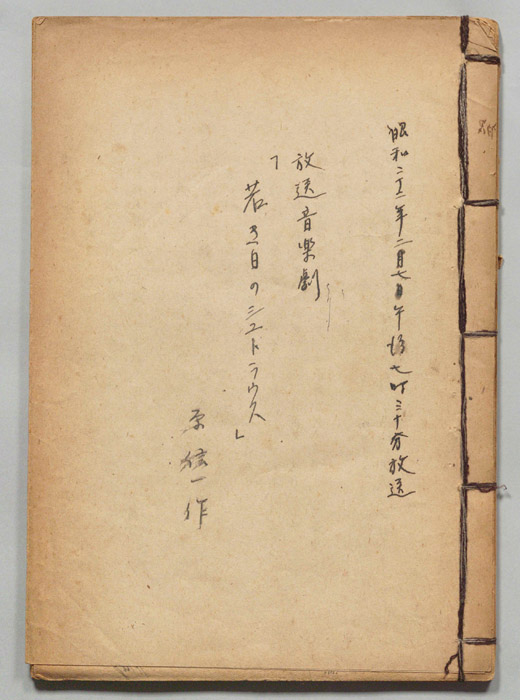 昭和二十二年二月七日午後七時三十分放送
放送音楽劇
「若き日のシュトラウス」
原信一作